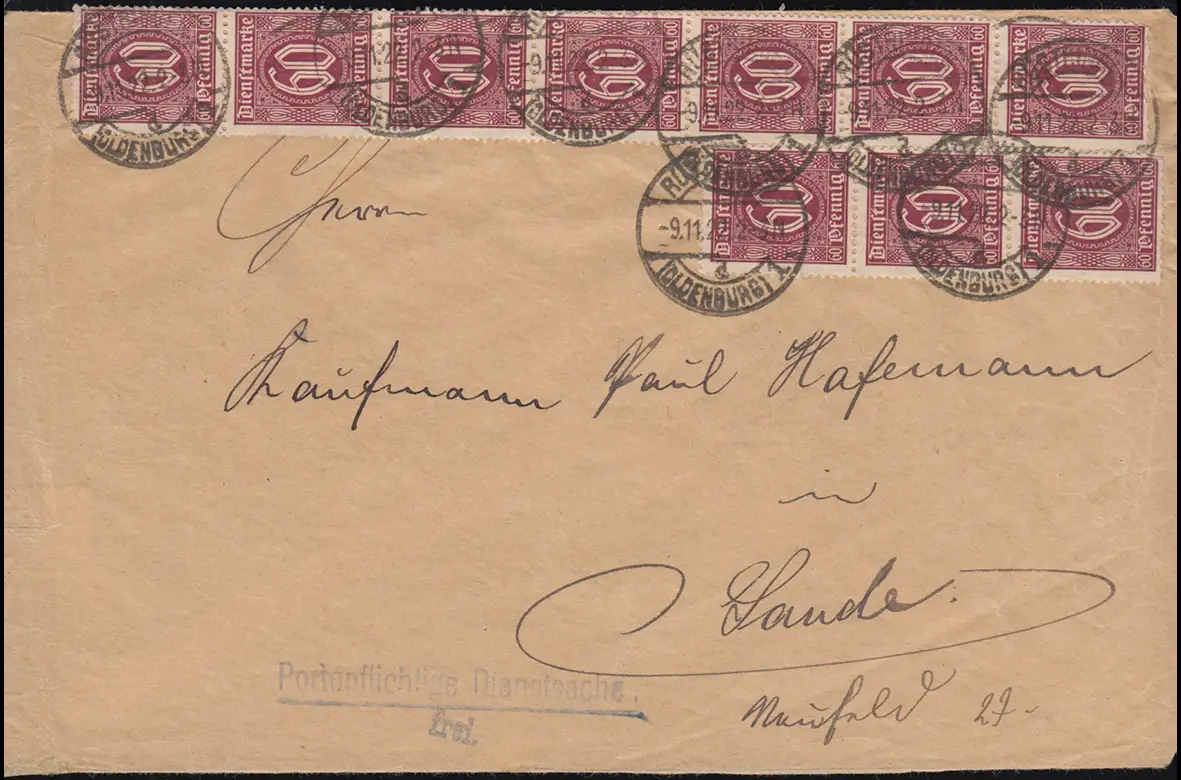 Dienstmarke 60 Pfennig 60 Dienstmarke 60 Pfennig 60 Dienstmarke 60 Pfennig 60 Dienstmarke 60 Pfennig 60 Dienstmarke 60 Pfennig 60 Dienstmarke 60 Pfennig 60 Dienstmarke 60 Pfennig 60
(OLDENBURG)
Dienstmarke 60 Pfennig 60 Dienstmarke 60 Pfennig 60 Dienstmarke 60 Pfennig 60
-9.11.22
(OLDENBURG) 1
Herrn
Kaufmann Paul Hafemann
in
Sande.
Neufeld 27.
Portopflichtige Dienstsache.
frei.